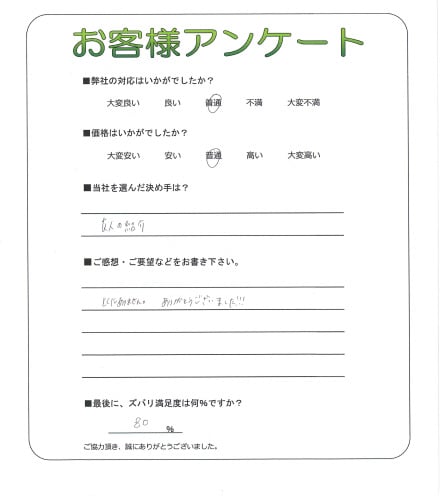 お客様アンケート
■弊社の対応はいかがでしたか？
大変良い 良い 普通 不満 大変不満
■価格はいかがでしたか？
大変安い 安い 普通 高い 大変高い
■当社を選んだ決め手は？
友人の紹介
■ご感想・ご要望などをお書き下さい。
とくにありません。 ありがとうございました!!!
■最後に、ズバリ満足度は何%ですか？
80 %
ご協力頂き、誠にありがとうございました。